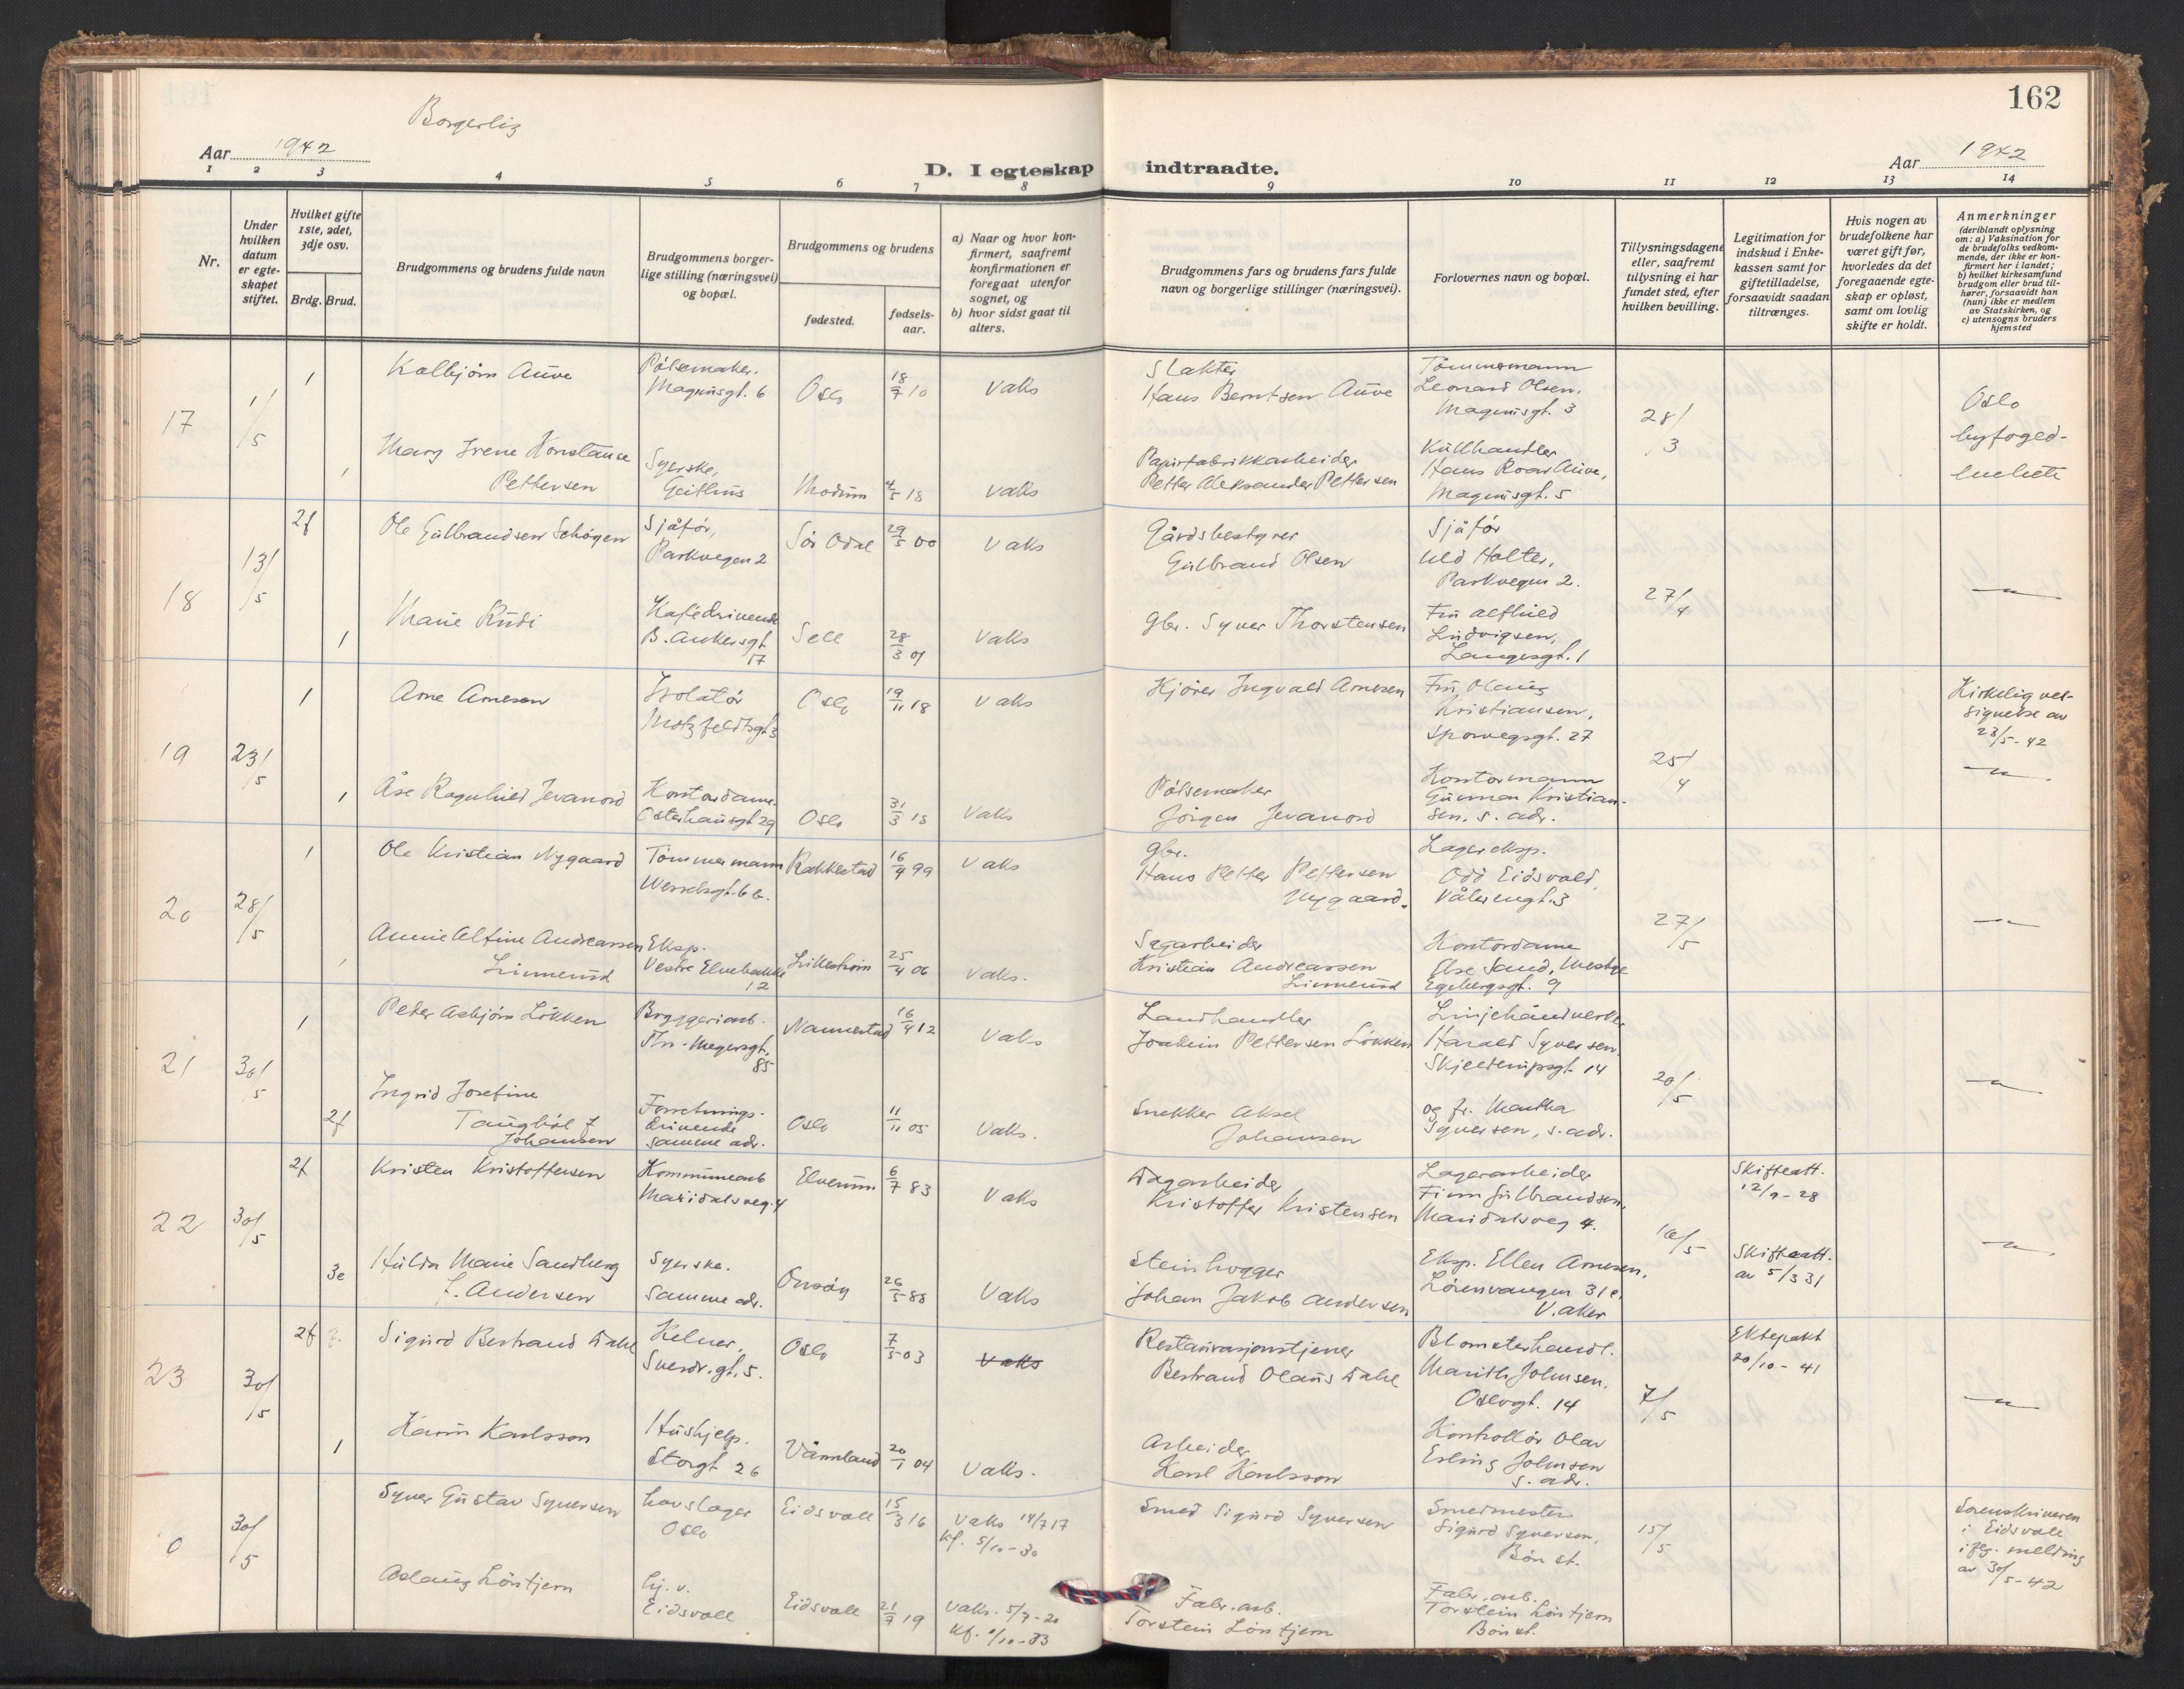 162
Borgerlig
Aar 1942
D. I egteskap indtraadte.
Aar 1942
1 2 3 4 5 6 7 8 9 10 11 12 13 14
Nr.
Under hvilken datum er egteskapet stiftet.
Hvilket gifte 1ste, 2det, 3dje osv.
Brdg. Brud.
Brudgommens og brudens fulde navn
Brudgommens borgerlige stilling (næringsvei) og bopæl.
Brudgommens og brudens
fødested.
fødselsaar.
a) Naar og hvor konfirmert, saafremt konfirmationen er foregaat utenfor sognet, og
b) hvor sidst gaat til alters.
Brudgommens fars og brudens fars fulde navn og borgerlige stillinger (næringsvei).
Forlovernes navn og bopæl.
Tillysningsdagene eller, saafremt tillysning ei har fundet sted, efter hvilken bevilling.
Legitimation for indskud i Enkekassen samt for giftetilladelse, forsaavidt saadan tiltrænges.
Hvis nogen av brudefolkene har været gift før, hvorledes da det foregaaende egteskap er opløst, samt om lovlig skifte er holdt.
Anmerkninger
(deriblandt oplysning om: a) Vaksination for de brudefolks vedkommende, der ikke er konfirmert her i landet; b) hvilket kirkesamfund brudgom eller brud tilhører, forsaavidt han (hun) ikke er medlem av Statskirken, og c) utensogns bruders hjemsted
17
1/5
1 Kolbjørn Auve
Pølsemaker. Magnusgt. 6
Oslo 18/7 10 vaks
Slakter Hans Berntsen Auve
Tømmermann Leonard Olsen, Magnusgt. 3
28/3
Oslo byfoged-
1 Mary Irene Konstanse Pettersen
Syerske, Geithus
Modum 4/5 18 vaks
Papirfabrikkarbeider Petter Aleksander Pettersen
Kullhandler Hans Roar Auve, Magnusgt. 5
18
13/5
2f Ole Gulbrandsen Schøyen
Sjåfør, Parkvegen 2
Sør Odal 29/5 00 vaks
Gårdsbestyrer Gulbrand Olsen
Sjåfør Uld Holter, Parkvegen 2.
27/4
— " —
1 Marie Rudi
Kafédrivende B. Ankersgt 17
Sell 28/3 01 vaks
Gbr. Syver Thorstensen
Fru Alfhild Ludvigsen, Langesgt. 1
19
23/5
1 Arne Arnesen
Isolatør Motzfeldtsgt 3
Oslo 19/11 18 vaks
Kjører Ingvald Arnesen
Fru Olaug Kristiansen, Sporvegsgt. 27
25/4
Kirkelig velsignelse av 23/5-42
— " —
1 Åse Ragnhild Jevanord
Kontordame Osterhausgt 29
Oslo 31/3 18 vaks
Pølsemaker Jørgen Jevanord
Kontormann Gunnar Kristiansen, s. adr.
20
28/5
1 Ole Kristian Nygaard
Tømmermann Wesselsgt. 6 b.
Rakkestad 16/4 99 vaks
Gbr. Hans Petter Pettersen Nygaard.
Lagereksp. Odd Eidsvold, Vålerengt. 3
27/5
— " —
1 Annie Alfine Andreassen Linnerud
Eksp. Vestre Elvebakke 12
Lillestrøm 25/4 06 vaks.
Sagarbeider Kristian Andreassen Linnerud
Kontordame Else Sand, Westye Egebergsgt. 9
21
30/5
1 Peder Asbjørn Løkken
Bryggeriarb. Thv-Meyersgt, 85
Nannestad 16/4 12 vaks
Landhandler Joakim Pettersen Løkken
Linjehåndverker Harald Syversen, Skjeldrupsgt. 14
20/5
— " —
2f Ingrid Josefine Taugbøl f Johansen
Forretningsdrivende samme adr.
Oslo 11/11 05 vaks.
Snekker Aksel Johansen
og fr. Martha Syversen, s. adr.
22
30/5
2f Kristen Kristoffersen
Kommunearb Maridalsveg. 4
Elverum 6/7 83 vaks
Dagarbeider Kristoffer Kristensen
Lagerarbeider Finn Gulbrandsen, Maridalsveg 4.
16/5
Skifteatt. 12/9-28
— " —
3e Hulda Marie Sandberg f. Andersen
Syerske. Samme adr.
Onsøy 26/5 88 vaks
Steinhogger Johan Jakob Andersen
Eksp. Ellen Arnesen, Lørenvangen 31 e, V. Aker
Skifteatt. av 5/3 31
23
30/5
2f Sigurd Bertrand Dahl
Kelner, Sverdr.gt. 5.
Oslo 7/5 03 vaks
Restaurasjonstjener Bertrand Olaus Dahl
Blomsterhandl. Marith Johnsen, Oslogt. 14
7/5
Ektepakt 20/10-41
— " —
1 Karin Karlsson
Hushjelp. Storgt 26
Värmland 20/1 04 vaks.
Arbeider Karl Karlsson
Kontrollør Olav Erling Johnsen s. adr.
0
30/5
Syver Gustav Syversen
hovslager Oslo
Eidsvoll 15/3 16 Vaks 14/7 17 Kf. 5/10-30
Smed Sigurd Syversen
Smedmester Sigurd Syversen, Bøn st.
15/5
Sorenskriveren i Eidsvoll iflg. melding av 30/5-42
Aslaug Løntjern
hj. v. Eidsvoll
Eidsvoll 21/7 19 Vaks. 5/7-20 Kf. 1/10-33
Fabr. arb. Torstein Løntjern
Fabr. arb. Torstein Løntjern Bøn st.